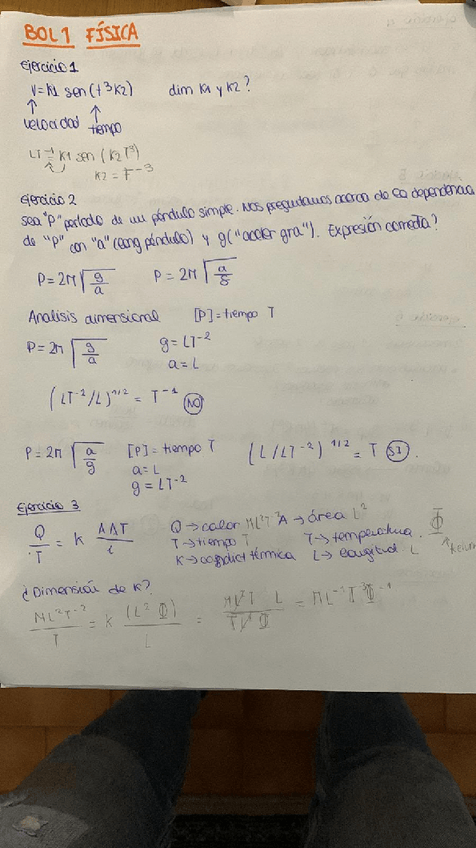 BOL 1 FÍSICA
Ejercicio 1
V=K1 sen(t³K2) dim K1 y K2?
↑ ↑
velocidad tiempo
LT⁻¹=K1 sen (K2T³)
K2=T⁻³
Ejercicio 2
sea "P" periodo de un péndulo simple. Nos preguntamos acerca de la dependencia
de "P" con "a" (long péndulo) y g ("aceler gra"). Expresión correcta?
P=2π√(g/a) P=2π√(a/g)
Analisis dimensional [P]=tiempo T
P=2π√(g/a) g=LT⁻²
a=L
(LT⁻²/L)^1/2 = T⁻¹ NO
P=2π√(a/g) [P]=tiempo T (L/LT⁻²)^1/2 = T SI.
a=L
g=LT⁻²
Ejercicio 3
Q/T = K AΔT/L Q→calor A→área L²
T→tiempo T T→temperatura.
K→conduct térmica L→longitud L
¿Dimensión de K?
ML²T⁻²/T = K (L² Φ)/L